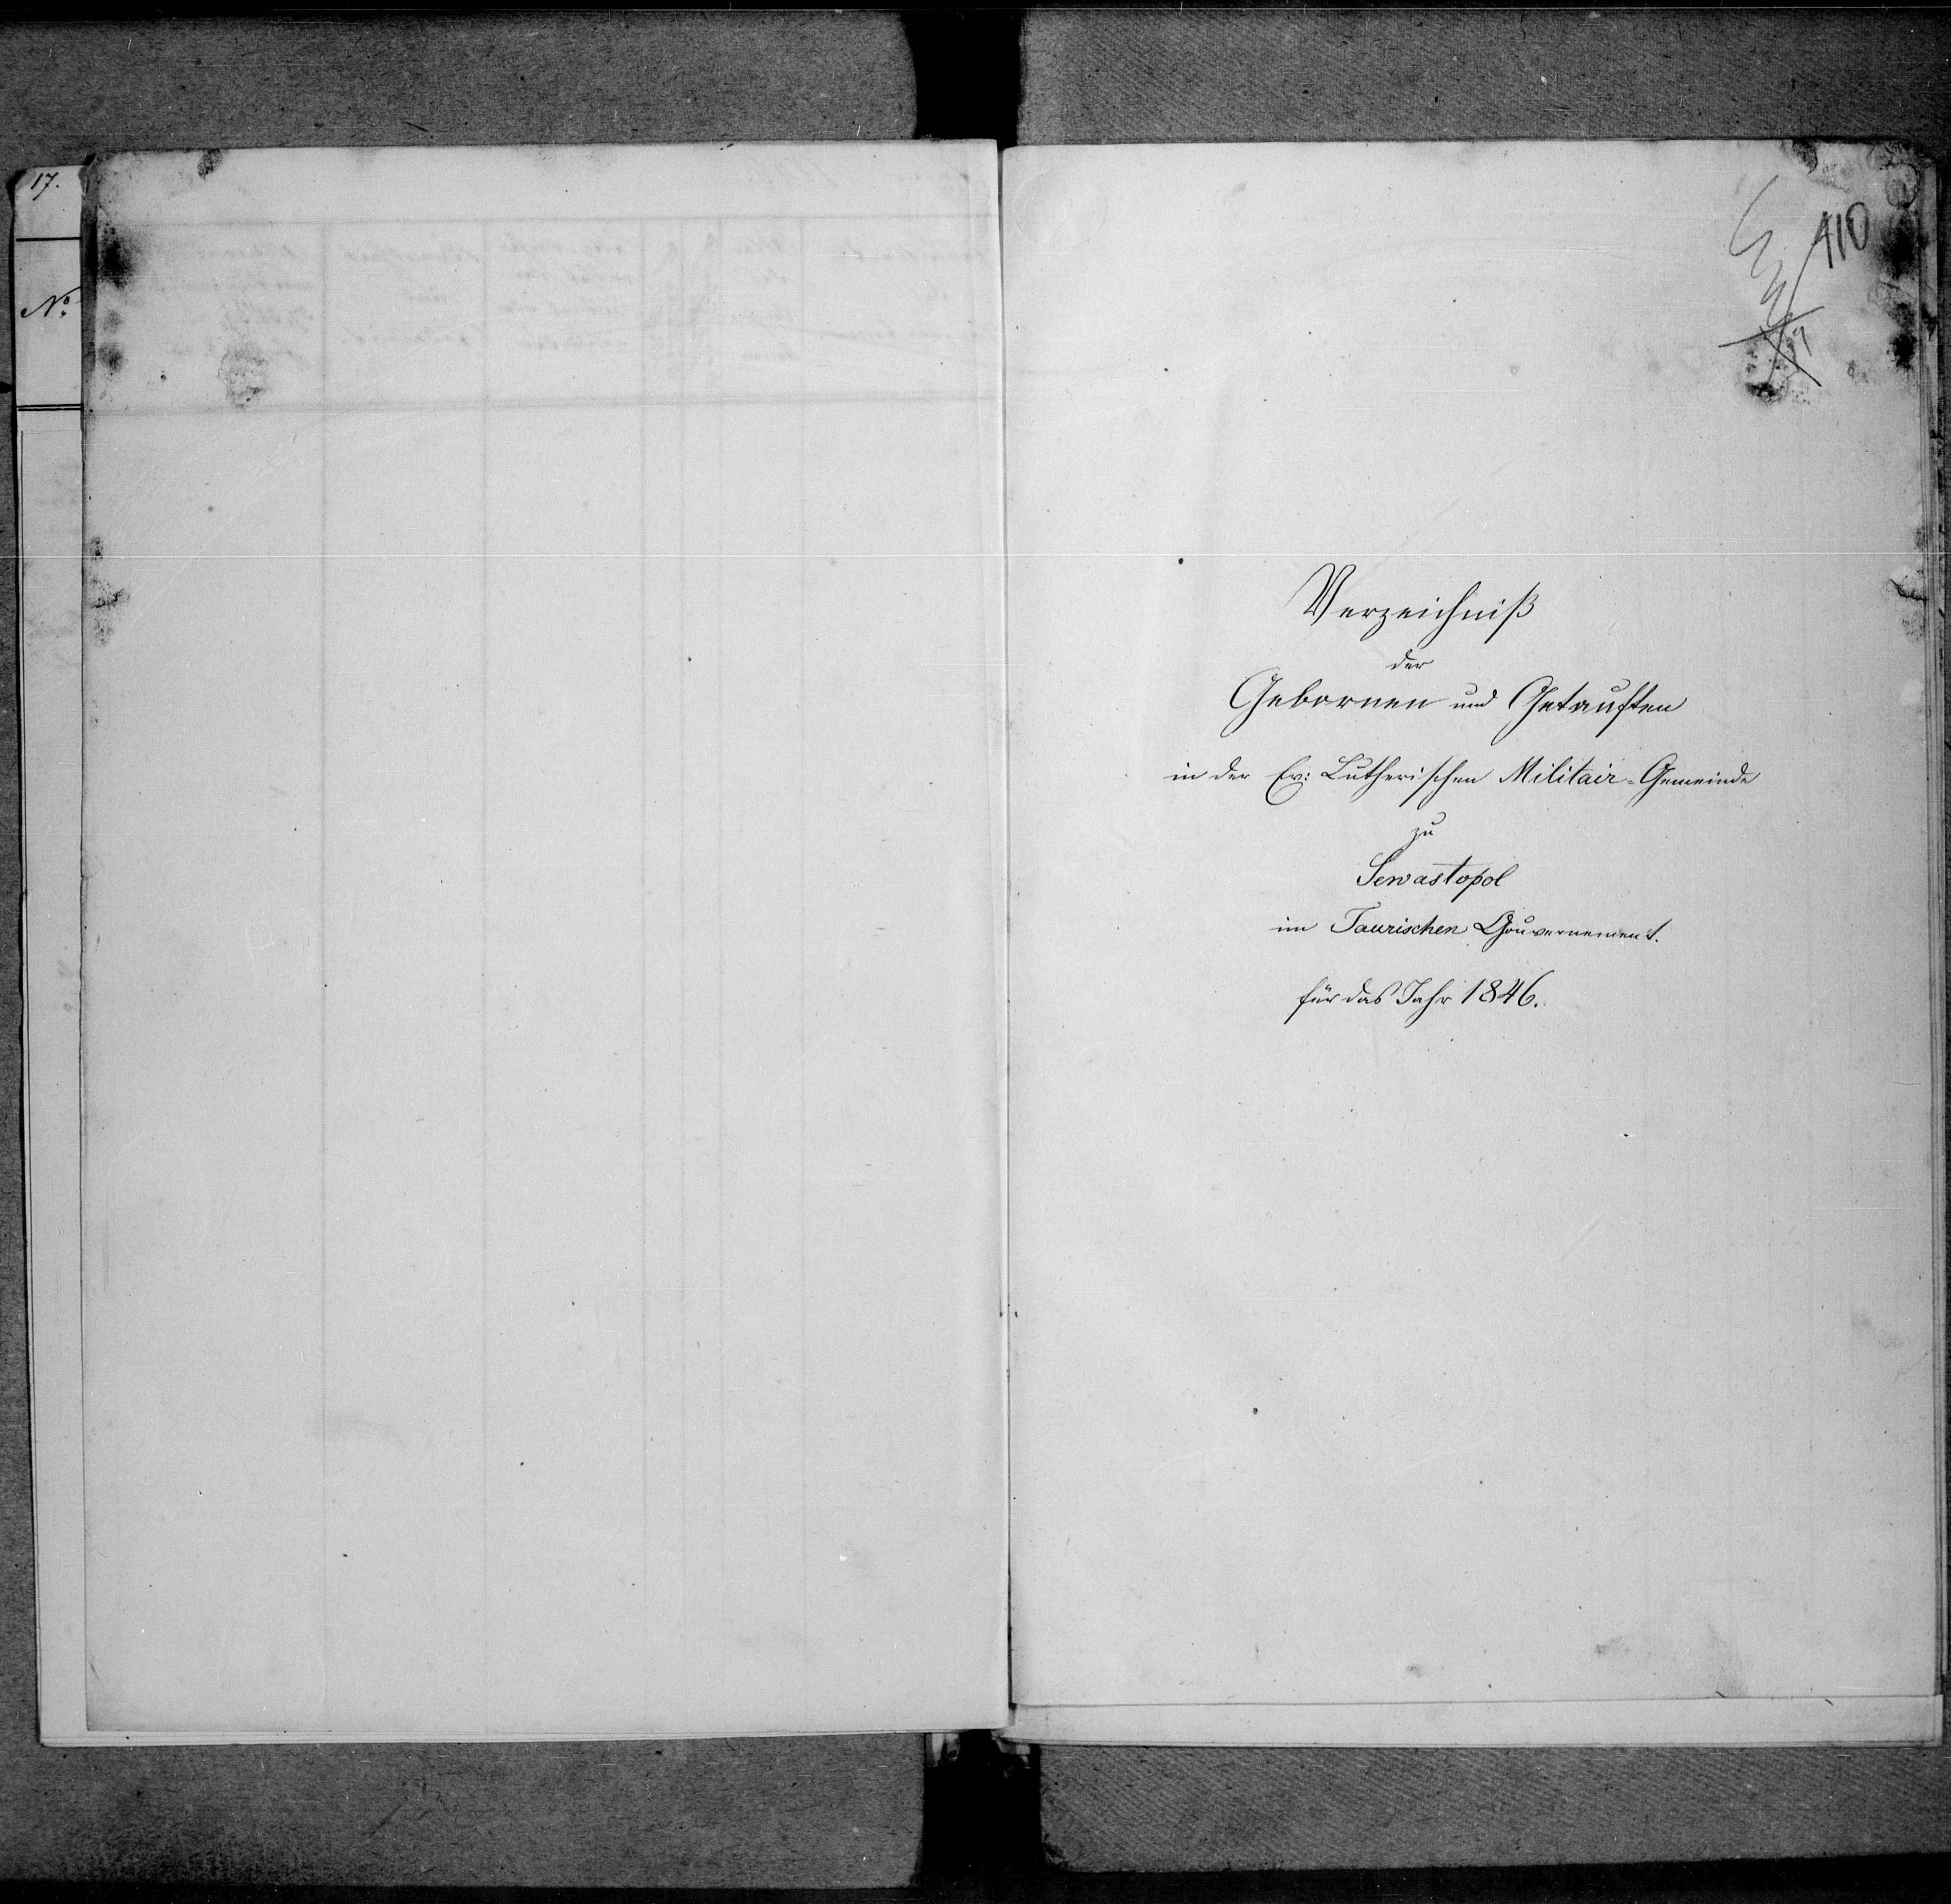 17.
No.
110
Verzeichniß
der
Gebornen und Getauften
in der Ev: Lutherischen Militair-Gemeinde
zu
Sewastopol
im Taurischen Gouvernement.
für das Jahr 1846.